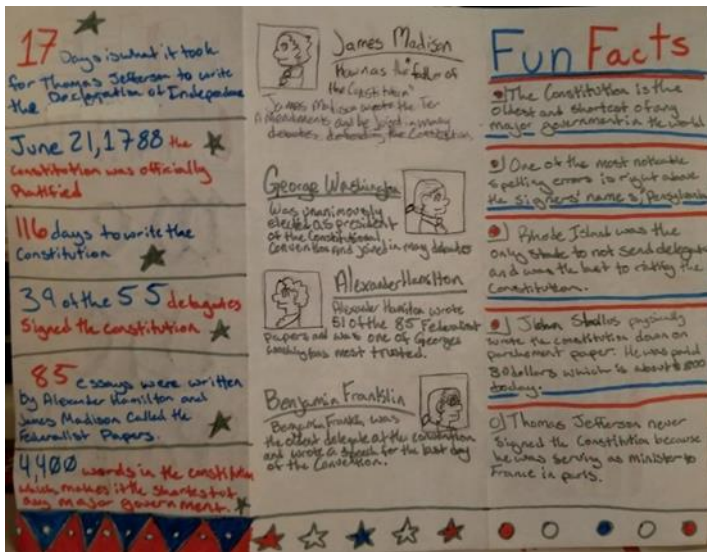 17 Days is what it took
for Thomas Jefferson to write
the Declegation of Independence
June 21, 1788 the
constitution was officially
Ratified
116 days to write the
Constitution
39 of the 55 delegates
Signed the constitution
85 essays were written
by Alexander Hamilton and
James Madison Called the
Federalist Papers.
4,400 words in the constitution
which makes it the shortest of
any major government.
James Madison
the "father of
the Constitution"
James Madison wrote the Ten
Amendments and he joined in many
debates defending the Constitution.
George Washington
Was unanimously
elected as president
of the Constitutional
Convention and joined in many debates
Alexander Hamilton
Alexander Hamilton wrote
51 of the 85 Federalist
papers and was one of Georges
washingtons most trusted.
Benjamin Franklin
Benjamin Franklin was
the oldest delegate at the convention
and wrote a speech for the last day
of the Convention.
Fun Facts
The Constitution is the
oldest and shortest of any
major government in the world
One of the most noticable
spelling errors is right above
the signers' names,
Rhode Island was the
only state to not send delegates
and was the last to ratify the
Constitution.
physically
wrote the constitution down on
parchement paper. He was paid
30 dollars which is about
today.
Thomas Jefferson never
Signed the Constitution because
he was serving as minister to
France in paris.